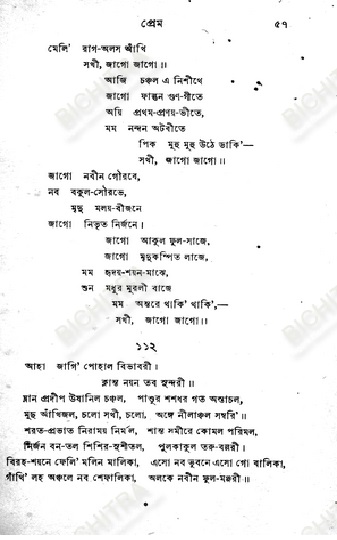 প্রেম ৫৭
মেলি' রাগ-অলস আঁখি
সখী, জাগো জাগো॥
আজি চঞ্চল এ নিশীথে
জাগো ফাল্গুন গুণ-গীতে
অয়ি প্রথম-প্রণয়-ভীতে,
মম নন্দন অটবীতে
পিক মুহু মুহু উঠে ডাকি'—
সখী, জাগো জাগো॥
জাগো নবীন গৌরবে,
নব বকুল-সৌরভে,
মৃদু মলয়-বীজনে
জাগো নিভৃত নির্জনে।
জাগো আকুল ফুল-সাজে,
জাগো মৃদুকম্পিত লাজে,
মম হৃদয়-শয়ন-মাঝে,
শুন মধুর মুরলী বাজে
মম অন্তরে থাকি' থাকি',—
সখী, জাগো জাগো॥
১১২
আহা জাগি' পোহাল বিভাবরী।
ক্লান্ত নয়ন তব সুন্দরী॥
ম্লান প্রদীপ উষানিল চঞ্চল, পাণ্ডুর শশধর গত অস্তাচল,
মুছ আঁখিজল, চলো সখী, চলো, অঙ্গে নীলাঞ্চল সম্বরি'॥
শরত-প্রভাত নিরাময় নির্মল, শান্ত সমীরে কোমল পরিমল,
নির্জন বন-তল শিশির-সুশীতল, পুলকাকুল তরু-বল্লরী।
বিরহ-শয়নে ফেলি' মলিন মালিকা, এসো নব ভুবনে এসো গো বালিকা,
গাঁথি' লহ অঞ্চলে নব শেফালিকা, অলকে নবীন ফুল-মঞ্জরী॥
BICHITRA